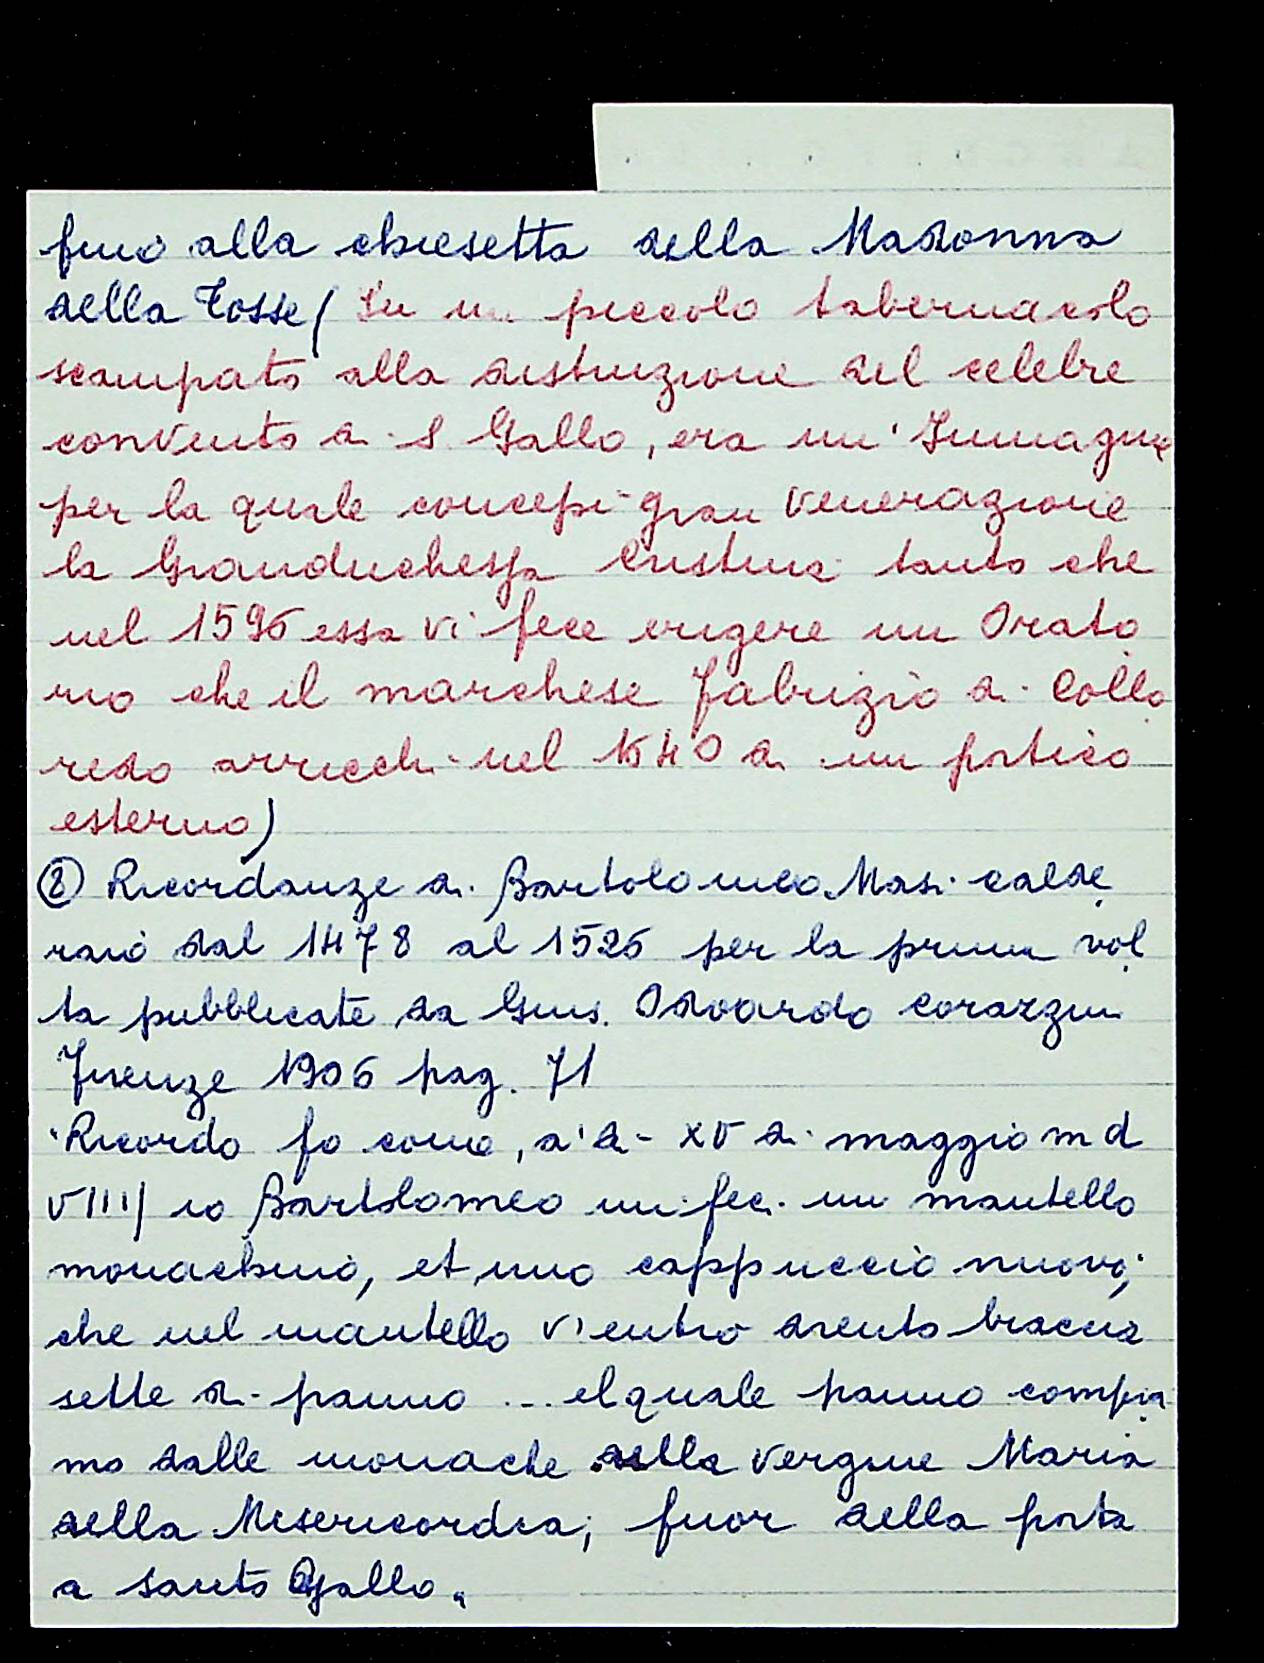 fino alla chiesetta della Madonna
della Tosse (In un piccolo tabernacolo
scampato alla distruzione del celebre
convento di S. Gallo, era un' Immagine
per la quale concepì gran venerazione
la Granduchessa Cristina tanto che
nel 1596 essa vi fece erigere un Orato
rio che il marchese Fabrizio di Collo
redo arricchì nel 1640 di un portico
esterno)
(8) Ricordanze di Bartolomeo Masi calde
raio dal 1478 al 1526 per la prima vol
ta pubblicate da Gius. Odoardo Corazzini
Firenze 1906 pag. 71
"Ricordo fo come, a' dì XV di maggio m d
VIII/ io Bartolomeo mi feci un mantello
monachino, et uno cappuccio nuovo;
che nel mantello v'entrò drento braccia
sette di panno ... el quale panno compra
mo dalle monache della Vergine Maria
della Misericordia; fuor della porta
a santo Gallo"